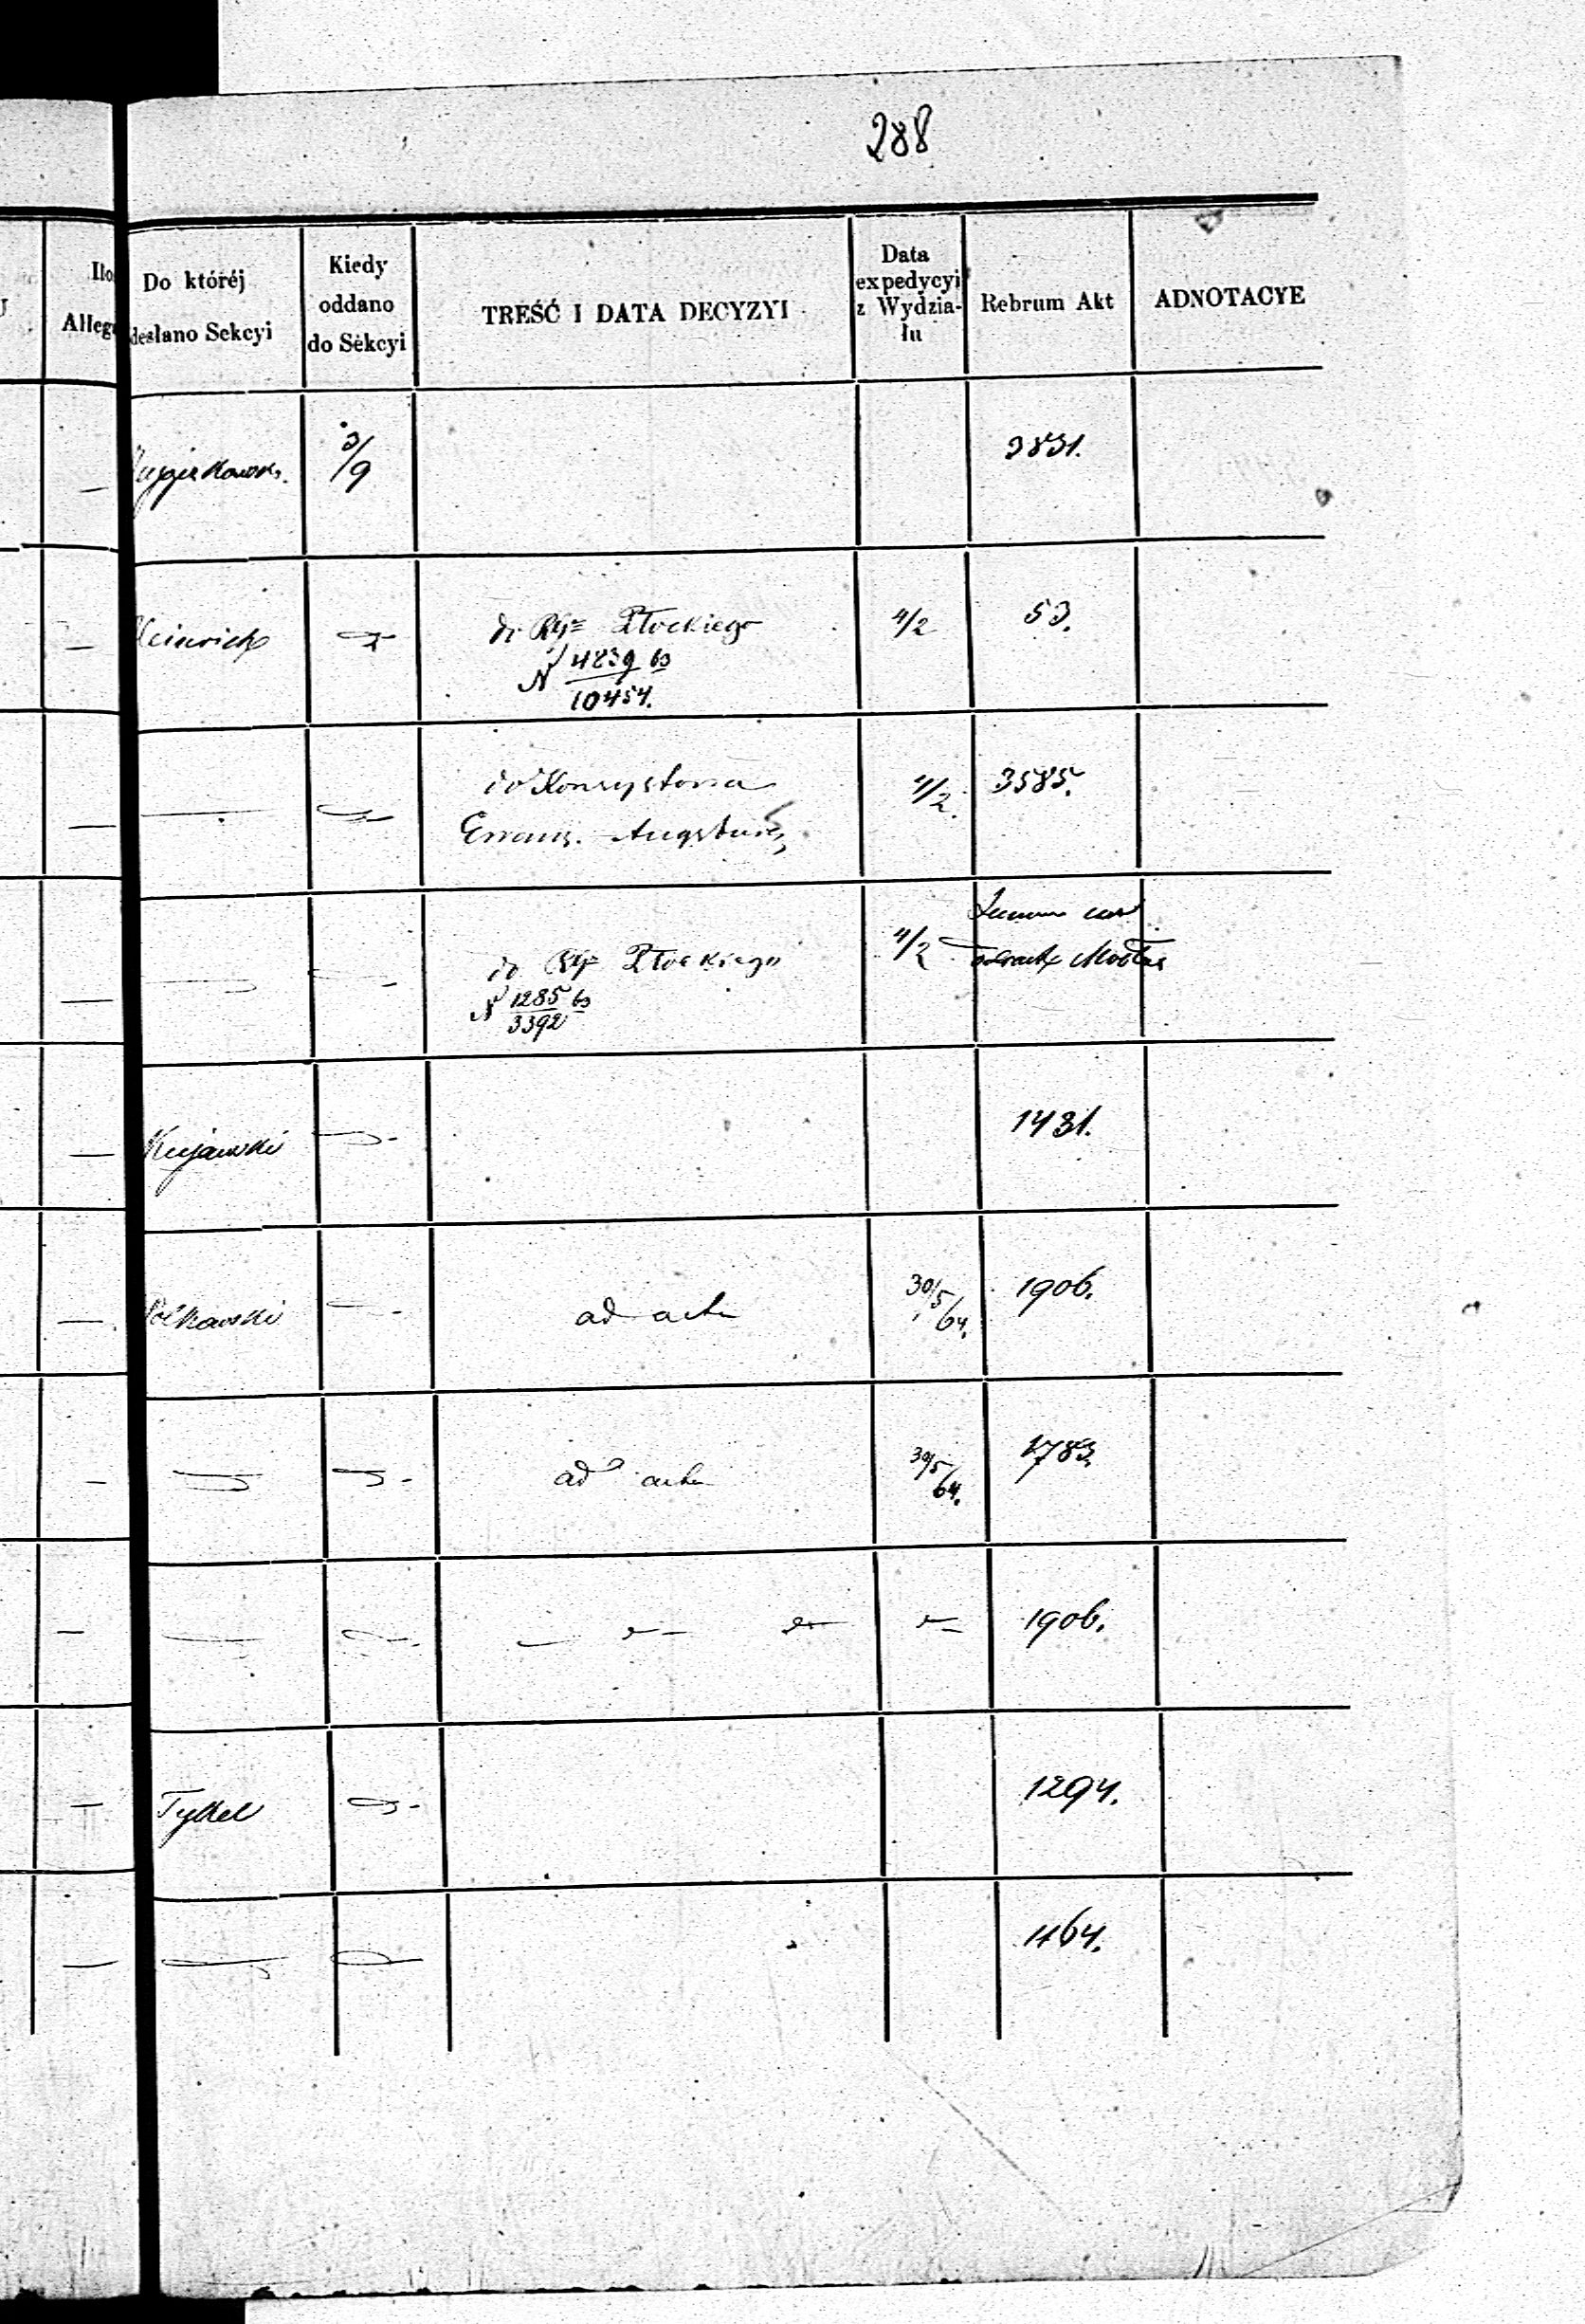 288
Do któréj
desłano Sekcyi
Kiedy
oddano
do Sekcyi
TREŚĆ I DATA DECYZYI
Data
expedycyi
z Wydzia-
łu
Rebrum Akt
ADNOTACYE
Ilo
Alleg
3/9
3831.
Heinrich
do Płockiego
N 4839/10454.
4/2
53.
do Konsystorza
Ewang. Augsburs
4/2
3585.
do Płockiego
N 1285/3392
4/2
Kujawski
1431.
ad acta
30/5/64.
1906.
ad acta
30/5/64.
1783.
1906.
Tykel
1294.
1164.